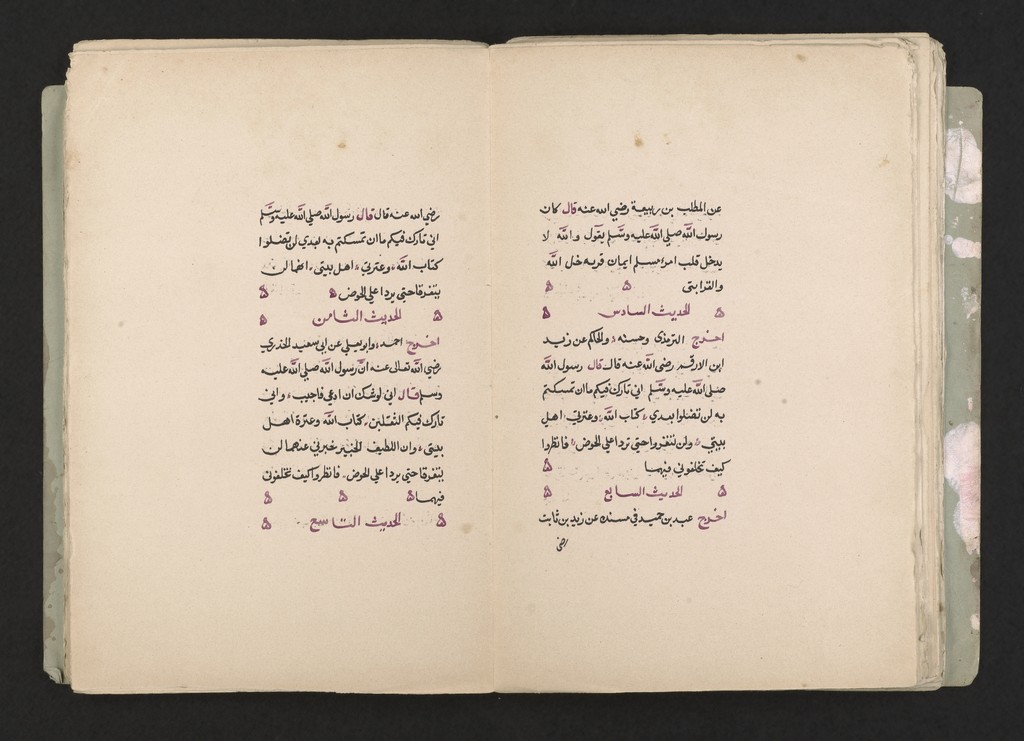 عن المطلب بن ربيعة رضي الله عنه قال كان
رسول الله صلى الله عليه وسلم يقول والله لا
يدخل قلب امرء مسلم ايمان
والقرابتى ه ه ه
ه الحديث السادس ه
اخرج الترمذى وحسنه ه والحاكم عن زيد
ابن الارقم رضى الله عنه قال قال رسول الله
صلى الله عليه وسلم انى تارك فيكم ما ان تمسكتم
به لن تضلوا بعدي ه كتاب الله ه وعترتى اهل
بيتي ه ولن تتفرقوا حتى تردا على الحوض ه فانظروا
كيف تخلفونى فيهما ه
ه الحديث السابع ه
اخرج عبد بن حميد فى مسنده عن زيد بن ثابت
رضى
رضى الله عنه قال قال رسول الله صلى الله عليه وسلم
انى تارك فيكم ما ان تمسكتم به بعدي لن تضلوا
كتاب الله ه وعترتى ه اهل بيتى ه انهما لن
يتفرقا حتى يردا على الحوض ه ه
ه الحديث الثامن ه
اخرج احمد ه وابو يعلى عن ابى سعيد الخدري
رضى الله تعالى عنه ان رسول الله صلى الله عليه
وسلم قال انى اوشك ان ادعى فاجيب ه وانى
تارك فيكم الثقلين ه كتاب الله وعترة اهل
بيتى ه وان اللطيف الخبير خبرنى عنهما لن
يتفرقا حتى يردا على الحوض ه فانظروا كيف تخلفونى
فيهما ه ه ه
ه الحديث التاسع ه